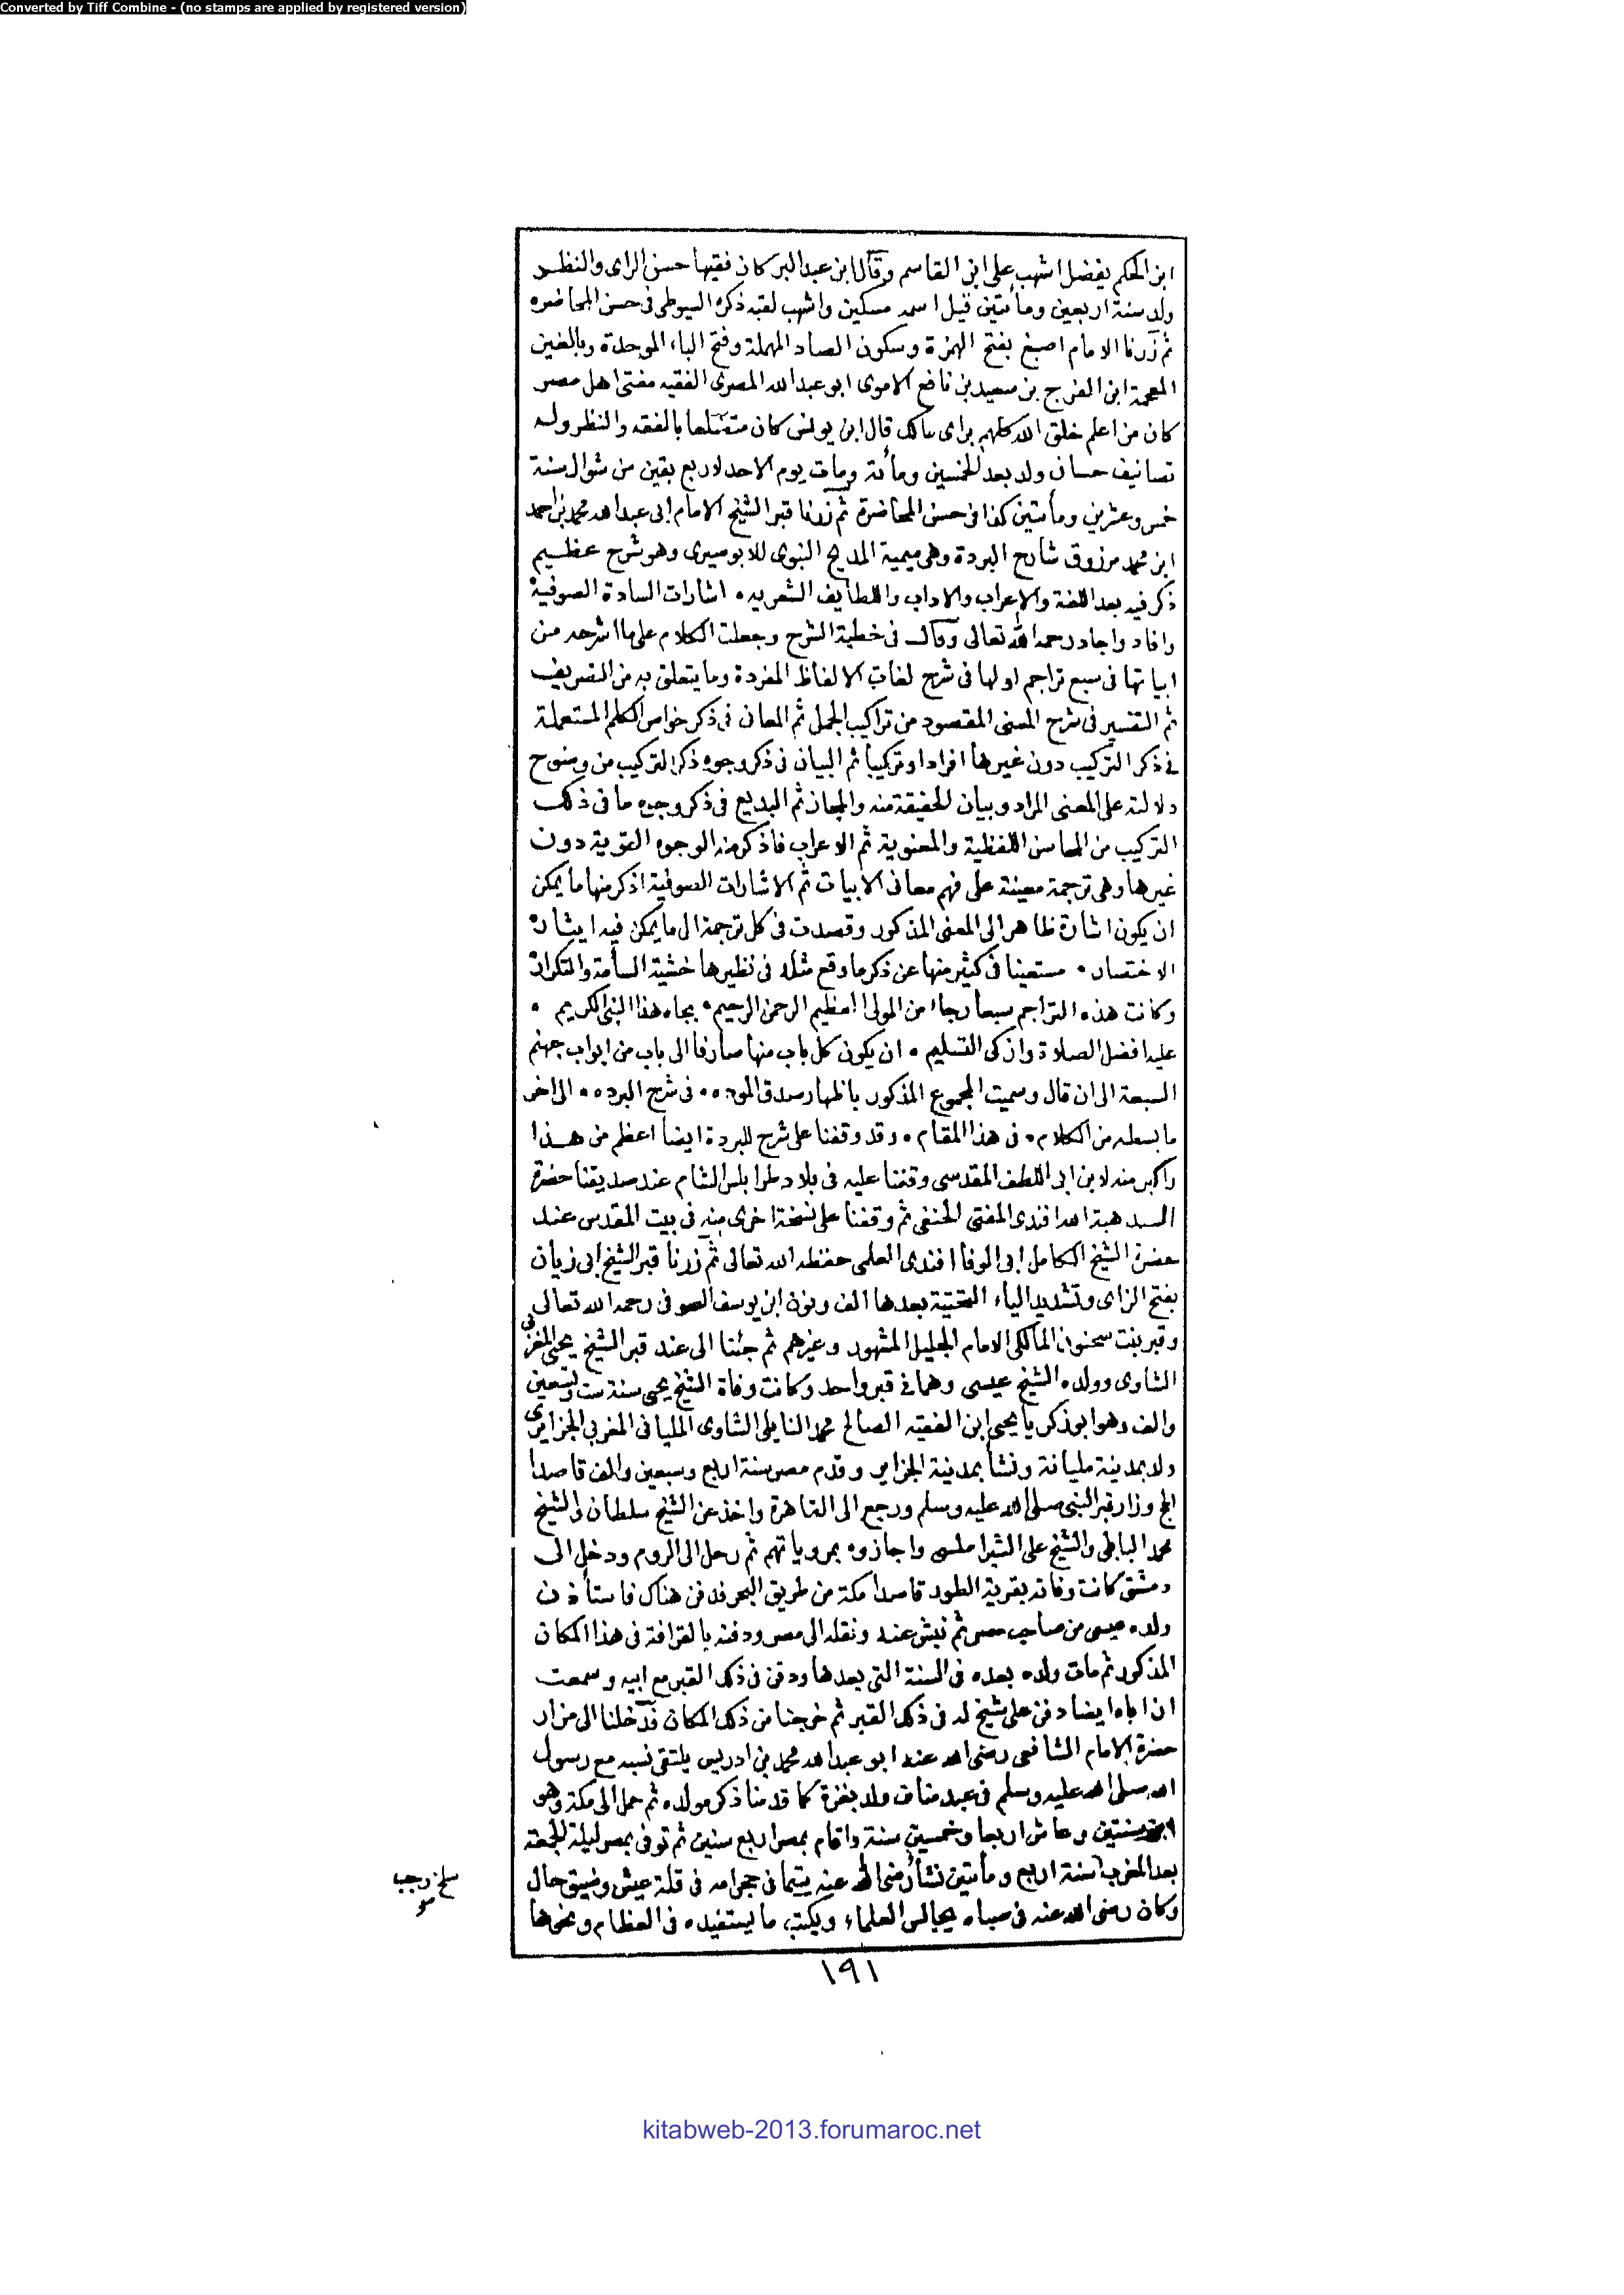 Converted by Tiff Combine - (no stamps are applied by registered version)
ابن الحكم يفضل اشهب على ابن القاسم وقال ابن عبد البر كان فقيها حسن الراى والنظر
ولد سنة اربعين ومأتين قيل اسمه مسكين واشهب لقبه ذكره السيوطى فى حسن المحاضره
ثم زرنا الامام اصبغ بفتح الهمزة وسكون الصاد المهملة وفتح الباء الموحدة وبالغين
المعجمة ابن الفرج بن سعيد بن نافع الاموى ابو عبد الله المصرى الفقيه مفتى اهل مصر
كان من اعلم خلق الله كلهم براى مالك قال ابن يونس كان متضلعا بالفقه والنظر وله
تصانيف حسان ولد بعد الخمسين ومأئة ومات يوم الاحد لاربع بقين من شوال سنة
خمس وعشرين ومأتين كذا فى حسن المحاضرة ثم زرنا قبر الشيخ الامام ابى عبد الله محمد بن احمد
ابن محمد مرزوق شارح البردة وهى ميمية المديح النبوى للابوصيرى وهو شرح عظيم
ذكر فيه بعد اللغة والاعراب والاداب واللطايف الشعريه . اشارات السادة الصوفية
وافاد واجاد رحمه الله تعالى وقال فى خطبة الشرح وجعلت الكلام على ما اشرحه من
ابياتها فى سبع تراجم اولها فى شرح لغات الالفاظ المفردة وما يتعلق به من التصريف
ثم التفسير فى شرح المعنى المقصود من تراكيب الجمل ثم المعان فى ذكر خواص الكلم المستعملة
فى ذكر التركيب دون غيرها افرادا وتركيبا ثم البيان فى ذكر وجوه ذكر التركيب من وضوح
دلالته على المعنى المراد وبيان الحقيقة منه والمجاز ثم البديع فى ذكر وجوه ما فى ذلك
التركيب من المحاسن اللفظية والمعنوية ثم الاعراب فاذكر منه الوجوه القوية دون
غيرها وهى ترجمة معينة على فهم معانى الابيات ثم الاشارات الصوفية اذكر منها ما يمكن
ان يكون اشارة ظاهر الى المعنى المذكور وقصدت فى كل ترجمة الى ما يمكن فيه ايثار
الاختصار . مستعينا فى كثير منها عن ذكر ما وقع مثله فى نظيرها خشية السأمة والتكرار
وكانت هذه التراجم سبعا رجاء من المولى العظيم الرحمن الرحيم . بجاه هذا النبى الكريم .
عليه افضل الصلاة وازكى التسليم . ان يكون كل باب منها صارفا الى باب من ابواب جهنم
السبعة الى ان قال وسميت المجموع المذكور باظهار صدق الموده . فى شرح البرده . الى اخر
ما بسطه من الكلام . فى هذا المقام . وقد وقفنا على شرح للبردة ايضا اعظم من هذا
واكبر منه لابن ابى اللطف المقدسى وقفنا عليه فى بلاد طرابلس الشام عند صديقنا حضرة
السيد هبة الله افندى المفتى الحنفى ثم وقفنا على نسخة اخرى منه فى بيت المقدس عند
حضرة الشيخ الكامل ابى الوفا افندى العلمى حفظه الله تعالى ثم زرنا قبر الشيخ ابى زيان
بفتح الزاى وتشديد الياء التحتية بعدها الف ونون ابن يوسف الصوفى رحمه الله تعالى
وقبر بنت سحنون المالكى الامام الجليل المشهور وغيرهم ثم جئنا الى عند قبر الشيخ يحيى المغربى
الشاوى وولده الشيخ عيسى وهما فى قبر واحد وكانت وفاة الشيخ يحيى سنة ست وتسعين
والف وهو ابو ذكريا يحيى ابن الفقيه الصالح محمد النايلى الشاوى المليانى المغربى الجزايرى
ولد بمدينة مليانة ونشأ بمدينة الجزاير وقدم مصر سنة اربع وسبعين والف قاصدا
الحج وزار قبر النبى صلى الله عليه وسلم ورجع الى القاهرة واخذ عن الشيخ سلطان والشيخ
محمد البابلى والشيخ على الشبراملسى واجازوه بمروياتهم ثم رحل الى الروم ودخل الى
دمشق كانت وفاته بقرية الطور قاصدا مكة من طريق البحر فدفن هناك فاستأذن
ولده عيسى من صاحب مصر ثم نبش عنه ونقله الى مصر ودفنه بالقرافة فى هذا المكان
المذكور ثم مات ولده بعده فى السنة التى بعدها ودفن فى ذلك القبر مع ابيه وسمعت
ان اباه ايضا دفن على شيخ له فى ذلك القبر ثم خرجنا من ذلك المكان فدخلنا الى مزار
حضرة الامام الشافعى رضى الله عنه ابو عبد الله محمد بن ادريس يلتقى نسبه مع رسول
الله صلى الله عليه وسلم فى عبد مناف ولد بغزة كما قدمنا ذكر مولده ثم حمل الى مكة وهو
ابن سنتين وعاش اربعا وخمسين سنة واقام بمصر اربع سنين ثم توفى بمصر ليلة الجمعة
بعد المغرب سنة اربع ومأتين نشأ رضى الله عنه يتيما فى حجر امه فى قلة عيش وضيق حال
وكان رضى الله عنه فى صباه يجالس العلماء ويكتب ما يستفيده فى العظام ونحوها
سلخ رجب
١٩١
kitabweb-2013.forumaroc.net